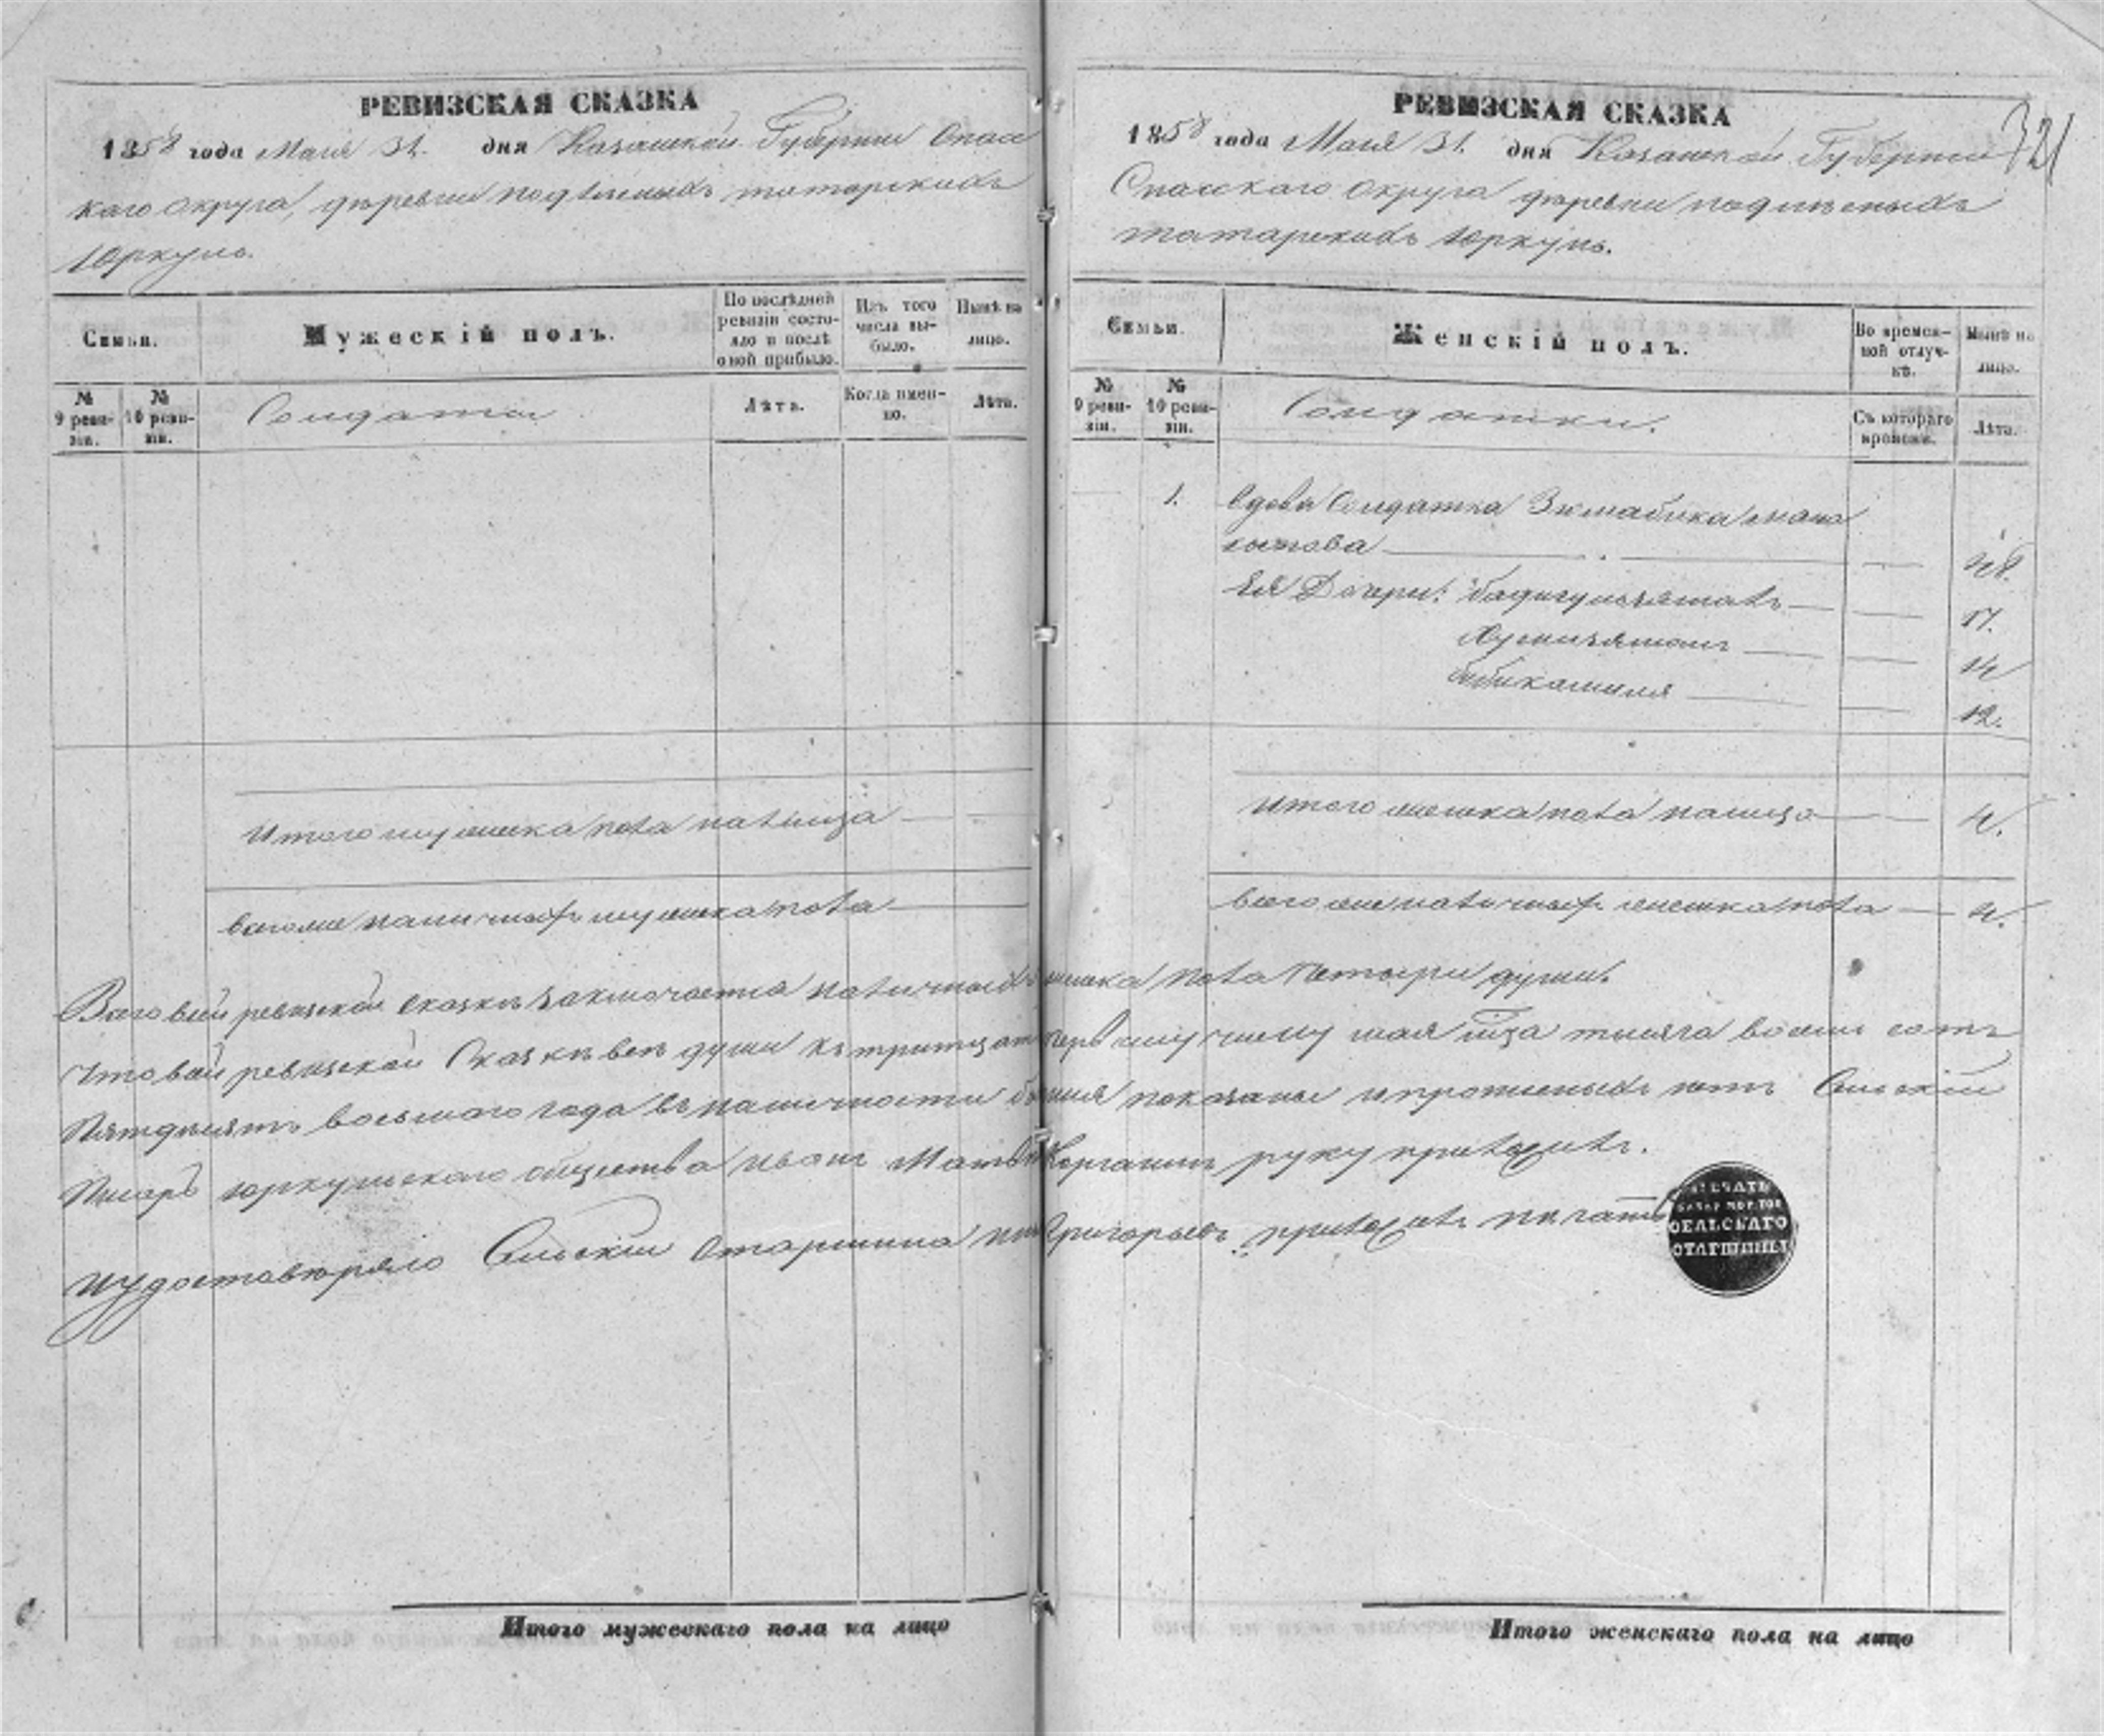 РЕВИЗСКАЯ СКАЗКА
1858 года Мая 31. дня Казанской Губернии Спас
каго округа, деревни татарскихъ
Юркуль.
Семьи.
Мужескій полъ.
По послѣдней ревизіи состояло и послѣ оной прибыло.
Изъ того числа выбыло.
Нынѣ на лицо.
№ 9 ревизіи.
№ 10 ревизіи.
Солдаты
Лѣта.
Когда именно.
Лѣта.
Итого мужеска пола налицо
Всего наличныхъ мужеска пола
РЕВИЗСКАЯ СКАЗКА
321
1858 года Мая 31. дня Казанской Губернии
Спасскаго округа деревни
татарскихъ Юркуль.
Семьи.
Женскій полъ.
Во временной отлучкѣ.
Нынѣ на лицо.
№ 9 ревизіи.
№ 10 ревизіи.
Солдатки.
Съ котораго времени.
Лѣта.
1. Вдова Солдатка
48.
Ея Дочери: 17.
14
12.
Итого женска пола налицо 4.
Всего наличныхъ женска пола 4.
Всего в сей ревизской сказкѣ заключается наличныхъ женска пола четыри души.
Что в сей ревизской Сказкѣ всѣ души къ тритцать первому числу мая тысяча восемь сотъ
Пятдесятъ восьмого года въ наличности показаны и нетъ Сельскій
Писарь Юркульского общества иванъ руку приложилъ.
удостоверяю Сельскій Старшина Григорьевъ приложилъ печать
ПЕЧАТЬ
СЕЛЬСКАГО
СТАРШИНЫ
Итого мужескаго пола на лицо
Итого женскаго пола на лицо